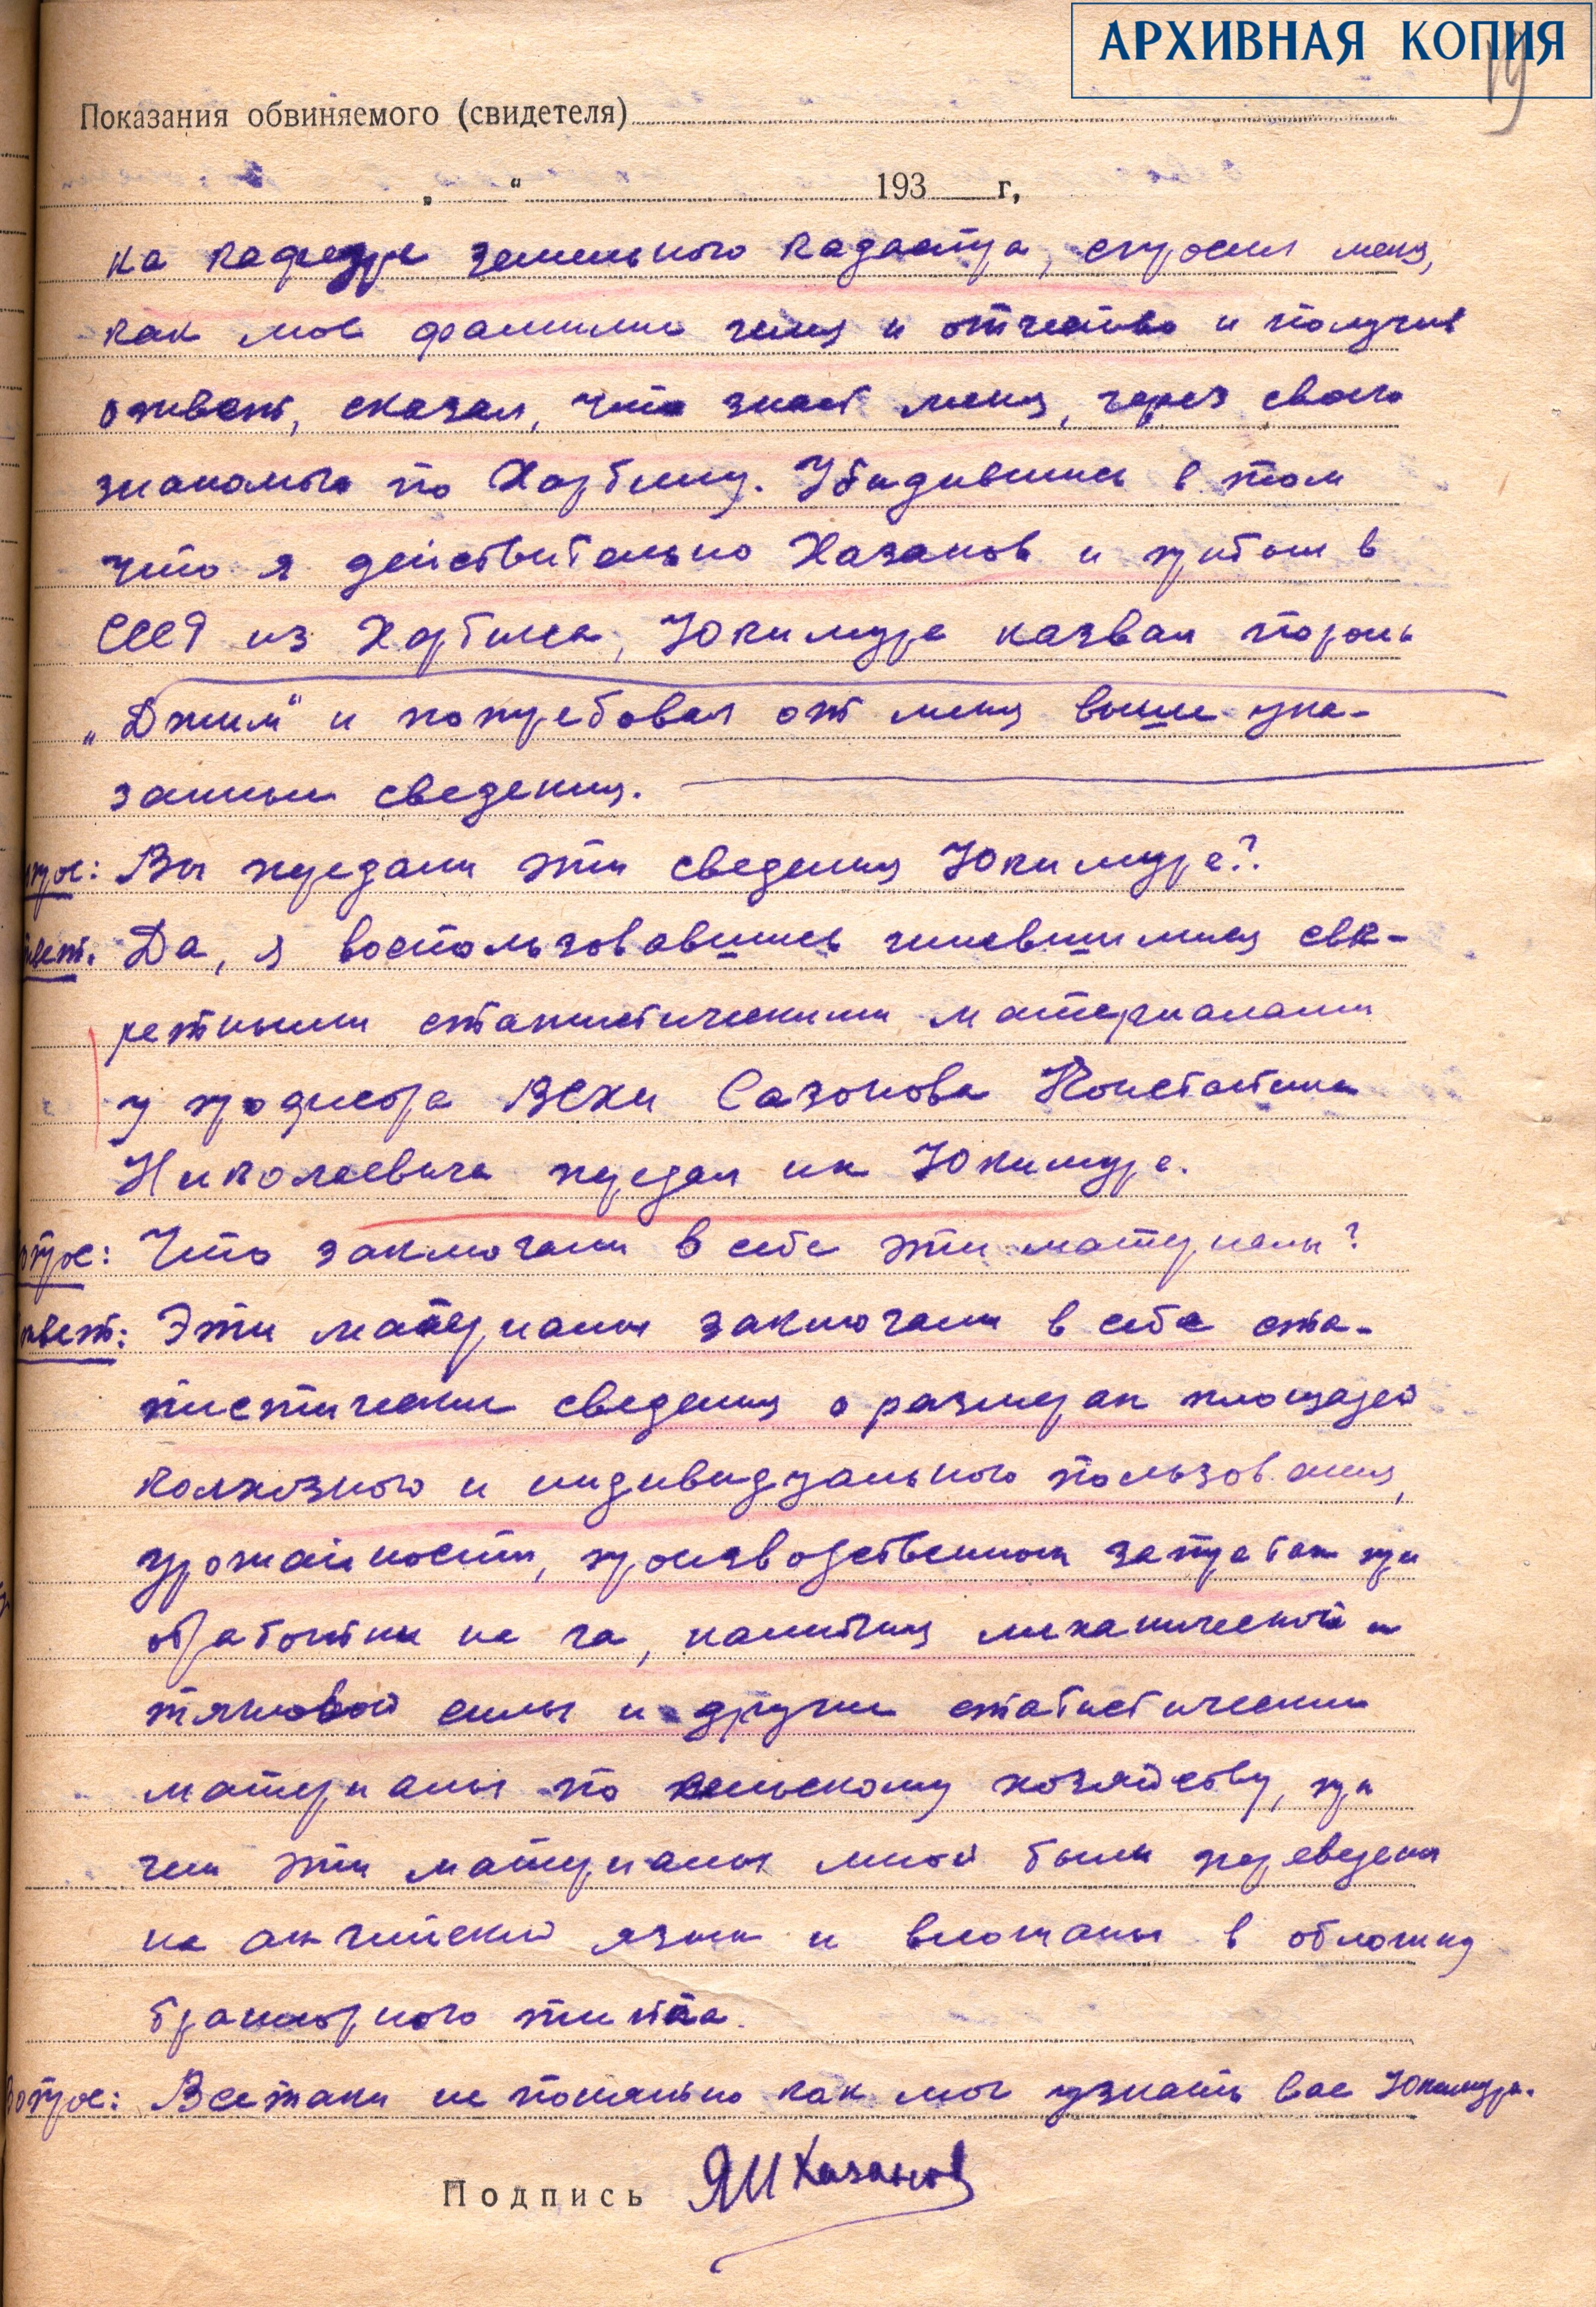 АРХИВНАЯ КОПИЯ
19
Показания обвиняемого (свидетеля)
„ “ 193 г,
на кафедре земельного кадастра, спросил меня,
как моя фамилия имя и отчество и получив
ответ, сказал, что знает меня, через своего
знакомого по Харбину. Убедившись в том
что я действительно Хазанов и прибыл в
СССР из Харбина, Юкимура назвал пароль
„Джим“ и потребовал от меня выше ука-
занные сведения.
опрос: Вы передали эти сведения Юкимуре?
твет. Да, я воспользовавшись имевшимися сек-
ретными статистическими материалами
у профессора ВСХИ Сазонова Константина
Николаевича передал их Юкимуре.
опрос: Что заключали в себе эти материалы?
твет: Эти материалы заключали в себе ста-
тистические сведения о размерах площадей
колхозного и индивидуального пользования,
урожайности, производственных затратах при
обработки на га, наличия механической и
тягловой силы и другие статистические
материалы по сельскому хозяйству, при
чем эти материалы мной были переведены
на английский язык и вложены в обложку
брошюрного типа.
Вопрос: Всетаки не понятно как мог узнать вас Юкимура.
Подпись ЯИХазанов